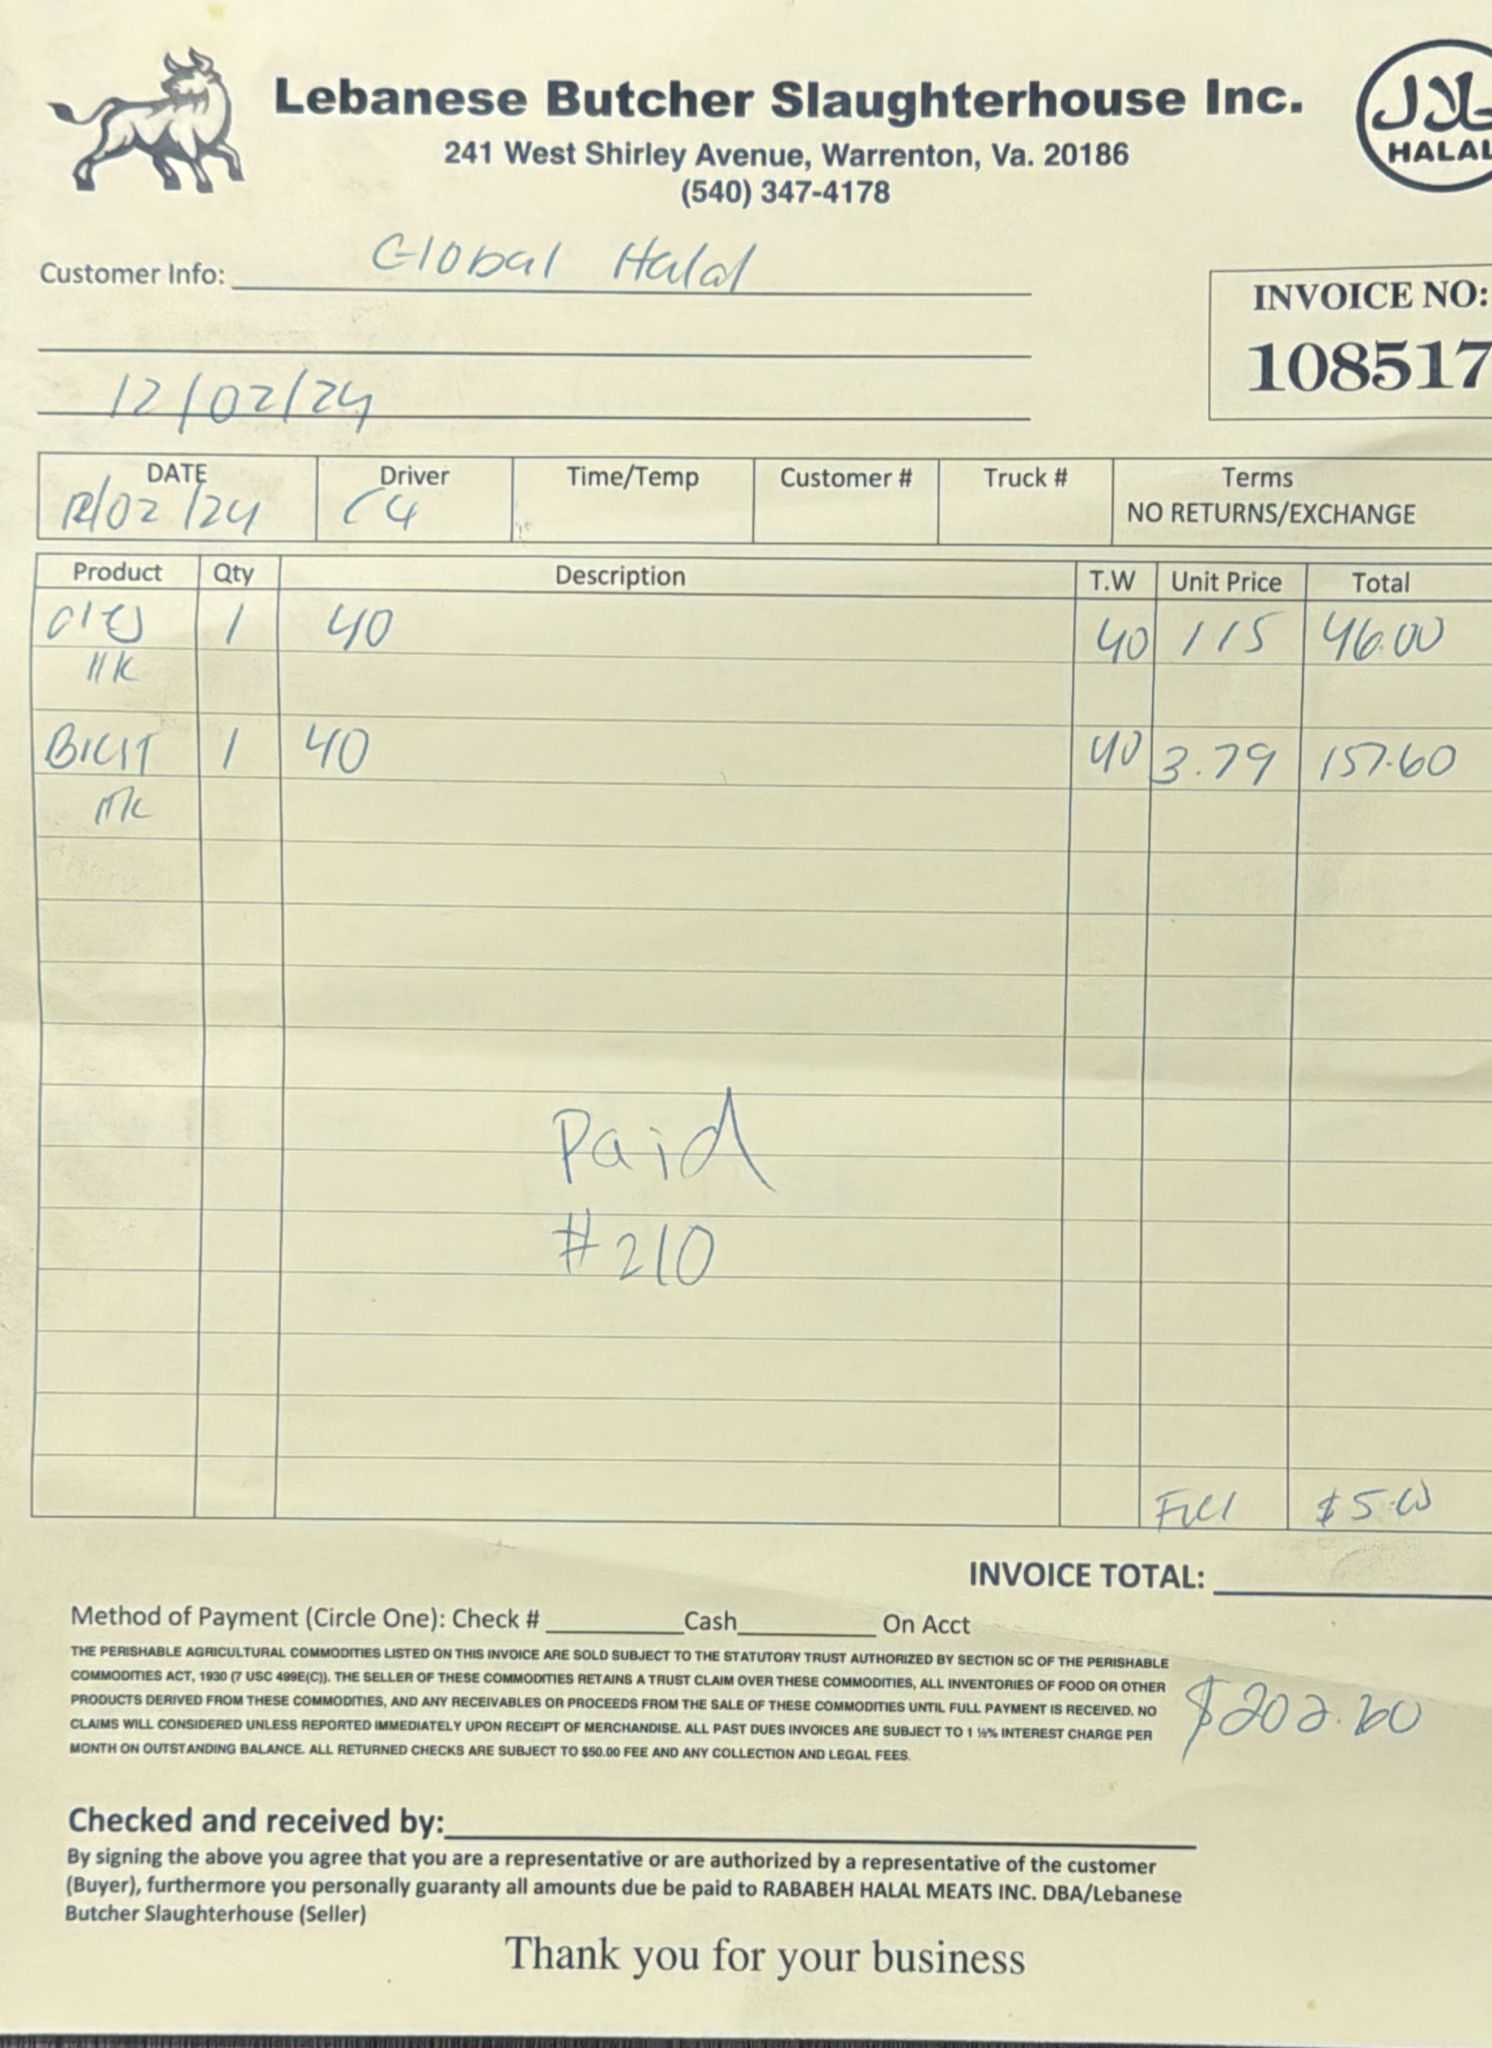 Lebanese Butcher Slaughterhouse Inc.
241 West Shirley Avenue, Warrenton, Va. 20186
(540) 347-4178
حلال
HALAL
Customer Info: Global Halal
INVOICE NO:
108517
12/02/24
DATE Driver Time/Temp Customer # Truck # Terms
12/02/24 C4 NO RETURNS/EXCHANGE
Product Qty Description T.W Unit Price Total
1 40 40 115 46.00
1 40 40 3.79 157.60
Paid
#210
$5.00
INVOICE TOTAL:
Method of Payment (Circle One): Check # Cash On Acct
THE PERISHABLE AGRICULTURAL COMMODITIES LISTED ON THIS INVOICE ARE SOLD SUBJECT TO THE STATUTORY TRUST AUTHORIZED BY SECTION 5C OF THE PERISHABLE
COMMODITIES ACT, 1930 (7 USC 499E(C)). THE SELLER OF THESE COMMODITIES RETAINS A TRUST CLAIM OVER THESE COMMODITIES, ALL INVENTORIES OF FOOD OR OTHER
PRODUCTS DERIVED FROM THESE COMMODITIES, AND ANY RECEIVABLES OR PROCEEDS FROM THE SALE OF THESE COMMODITIES UNTIL FULL PAYMENT IS RECEIVED. NO
CLAIMS WILL CONSIDERED UNLESS REPORTED IMMEDIATELY UPON RECEIPT OF MERCHANDISE. ALL PAST DUES INVOICES ARE SUBJECT TO 1 ½% INTEREST CHARGE PER
MONTH ON OUTSTANDING BALANCE. ALL RETURNED CHECKS ARE SUBJECT TO $50.00 FEE AND ANY COLLECTION AND LEGAL FEES.
$202.60
Checked and received by:
By signing the above you agree that you are a representative or are authorized by a representative of the customer
(Buyer), furthermore you personally guaranty all amounts due be paid to RABABEH HALAL MEATS INC. DBA/Lebanese
Butcher Slaughterhouse (Seller)
Thank you for your business